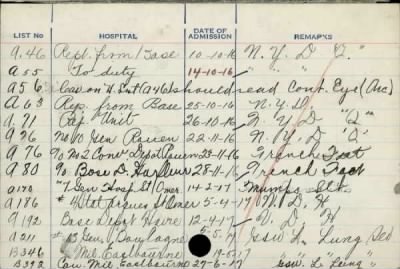 LIST NO HOSPITAL DATE OF ADMISSION REMARKS
A.46 Rept. from Base 10-10-16 N.Y.D "Q."
A55 To duty 14-10-16 " "
A56 Cas on H. List (A46) should read Cont. Eye (Acc)
A63 Rep. from Base 25-10-16 N.Y.D.
A71 Rep. Unit 26-10-16 N.Y.D "Q"
A76 No 10 Gen Rouen 22-11-16 N.Y.D. "Q"
A76 To No 2 Conv. Depot Rouen 23-11-16 Trench Feet
A80 To Base D. Harfleur 28-11-16 Trench Foot
A170 7 Gen. Hosp St Omer 14-2-17 Mumps
A186 4 Stat St Omer 5-4-17 V.D.H.
A192 Base Depot Havre 12-4-17 V.D.H
A211 13 Gen. Boulogne 5.5.17 Gsw L. Lung Sev
B346 Mil. Eastbourne -5-17 " "
B322 Mil. Eastbourne 27-6-17 Gsw L. Lung